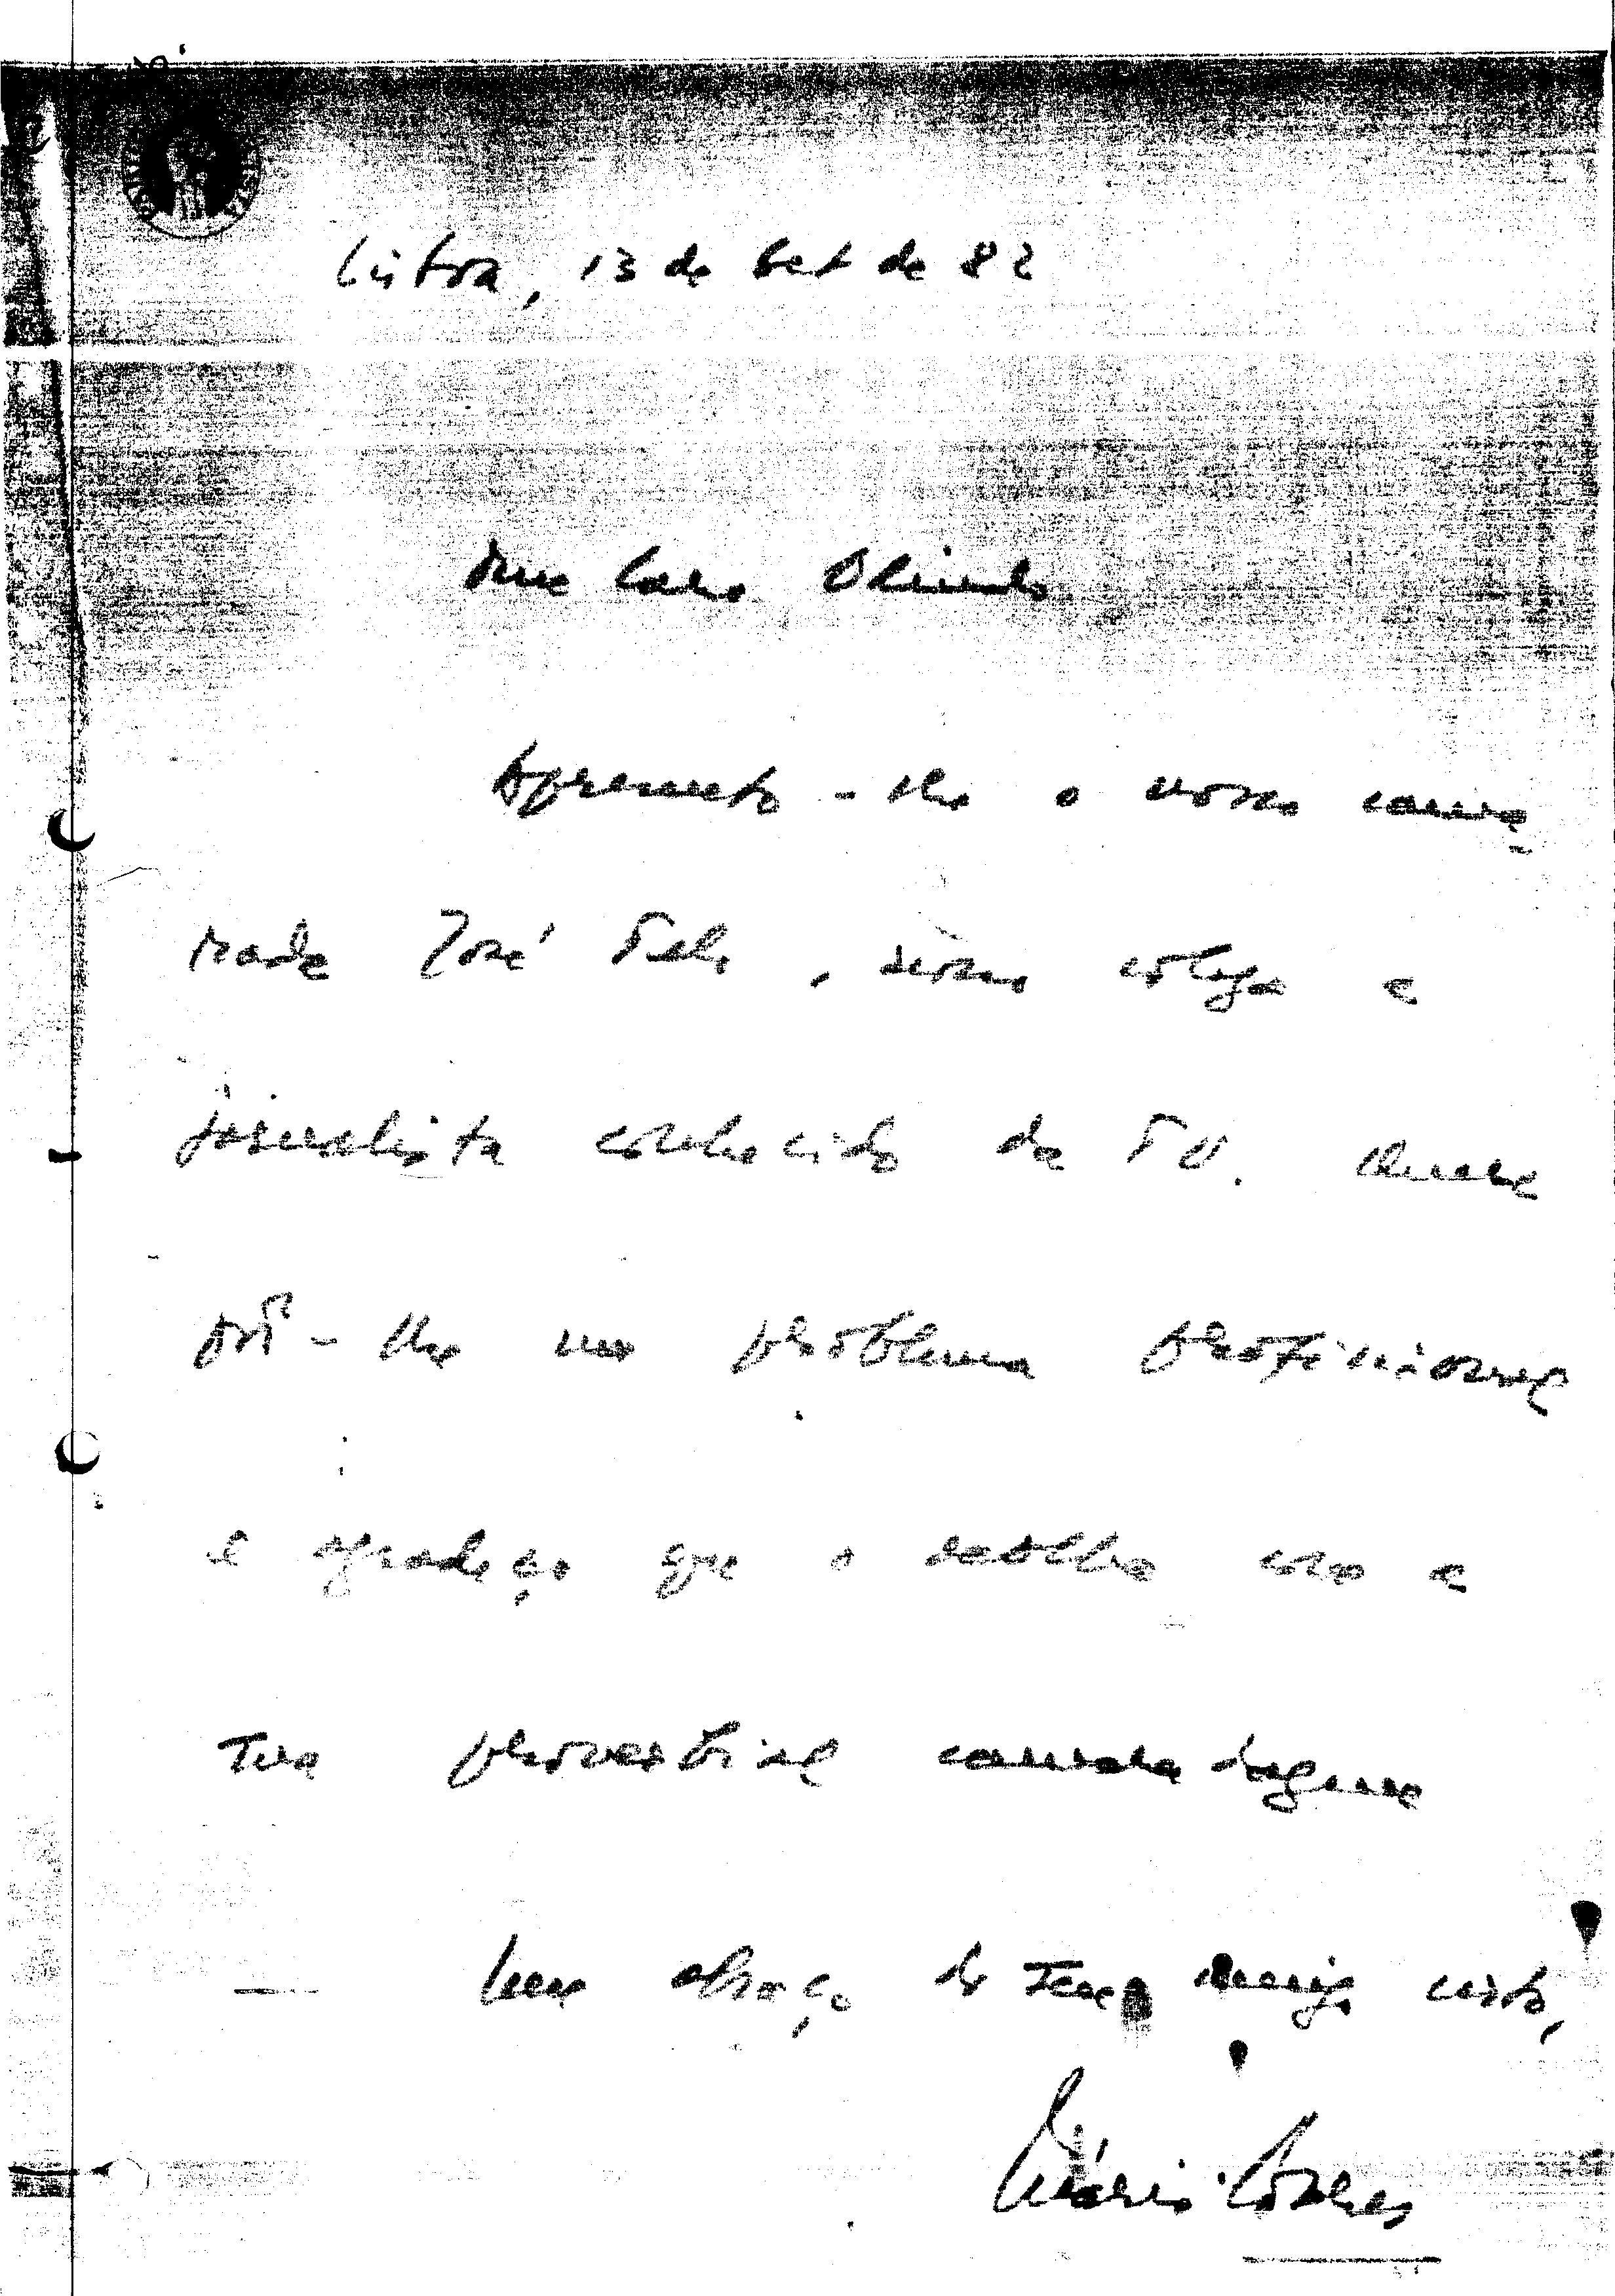 Lisboa, 13 de Set de 82
Meu Caro Olindo
Apresento-lhe o nosso cama
rada José Teles, nosso colega e
jornalista conhecido da TV. Quere
pôr-lhe um problema profissional
e agradeço que o receba com a
tua proverbial camaradagem
Um abraço do teu amigo certo,
Mário Soares